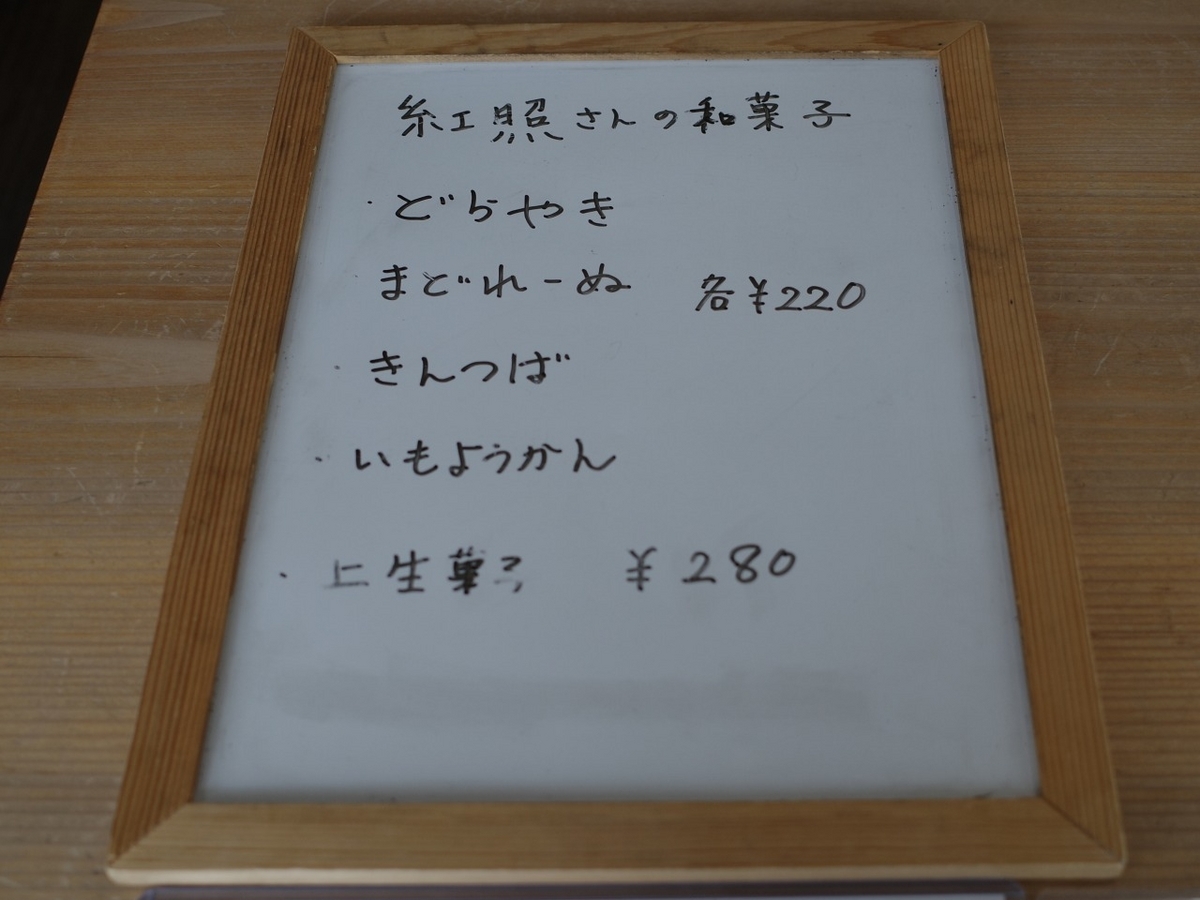 紅照さんの和菓子
・どらやき
まどれーぬ 各¥220
・きんつば
・いもようかん
・上生菓子 ¥280